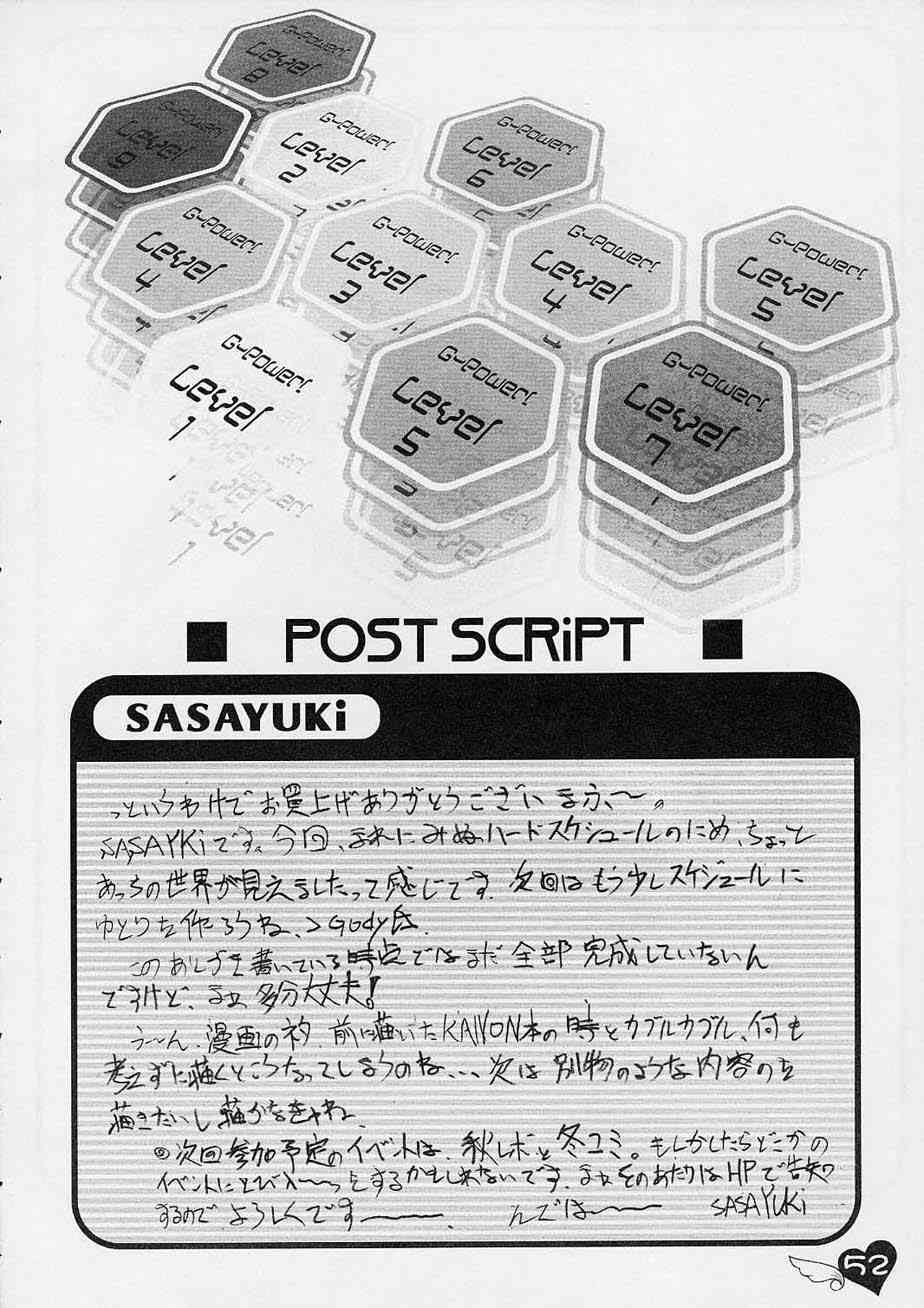 G-Power!
Level
8
G-Power!
Level
9
G-Power!
Level
2
G-Power!
Level
6
G-Power!
Level
4
G-Power!
Level
3
G-Power!
Level
4
G-Power!
Level
5
G-Power!
Level
1
G-Power!
Level
5
G-Power!
Level
7
■ POST SCRiPT ■
SASAYUKi
っというわけでお買上げありがとうございまふ〜。
SASAYKiです。今回、まれにみぬハードスケジュールのため、ちょっと
あっちの世界が見えましたって感じです。次回はもう少しスケジュールに
ゆとりを作ろうね、>Gody氏.
このあとがきを書いている時点ではまだ全部完成していないん
ですけど、まぁ多分大丈夫!
う〜ん、漫画のネタ、前に描いたKANON本の時とカブルカブル、何も
考えずに描くとこうなってしまうのね、、、次は別物のような内容のを
描きたいし描かなきゃね、
次回参加予定のイベントは、秋レボと冬コミ。もしかしたらどこかの
イベントにとび入〜〜っとするかもしれないです。まぁそのあたりはHPで告知
するので、よろしくです———. んでは〜〜 SASAYUKi
52